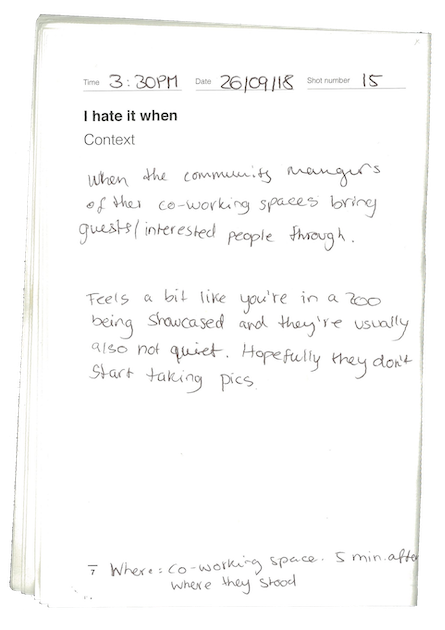 Time 3:30PM Date 26/09/18 Shot number 15
I hate it when
Context
When the community mangers
of thes co-working spaces bring
guests/interested people through.
Feels a bit like you're in a zoo
being showcased and they're usually
also not quiet. Hopefully they don't
start taking pics.
7 Where: co-working space. 5 min after
where they stood